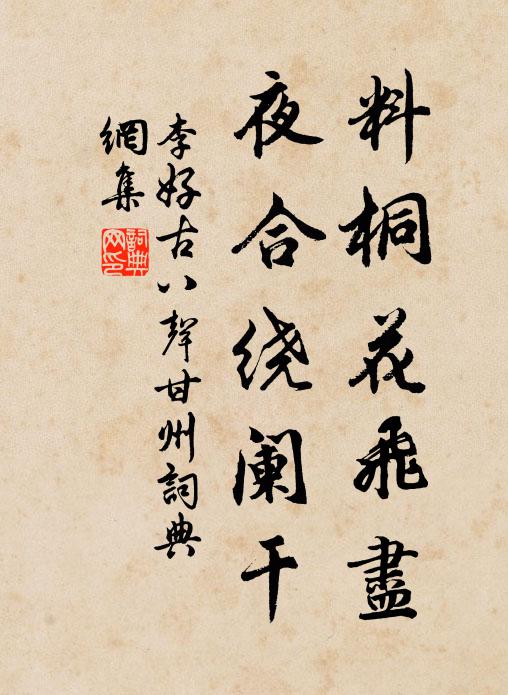 料桐花飛盡
夜合绕阑干
李好古八聲甘州詞典
網集
詞典網印